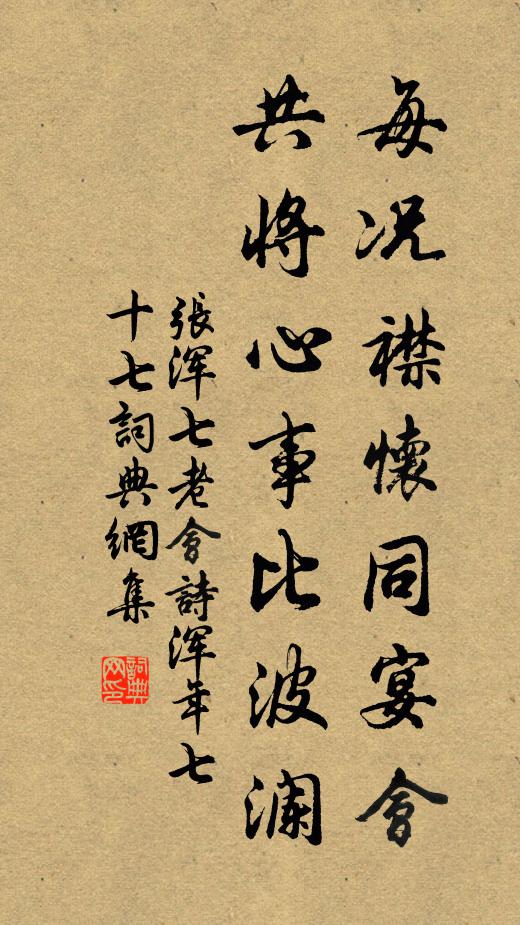 每况襟懷同宴會
共將心事比波澜
張渾七老會詩渾年七
十七詞典網集
詞典
网印